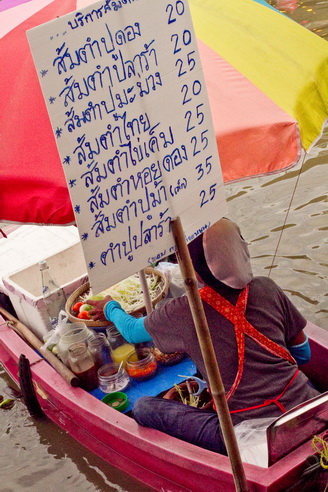 บริการส้มตำ
* ส้มตำปูดอง 20
* ส้มตำปูปลาร้า 20
* ส้มตำปูมะม่วง 25
* ส้มตำไทย 20
* ส้มตำไข่เค็ม 25
* ส้มตำหอยดอง 25
* ส้มตำปูม้า (ตัว) 35
* ตำปูปลาร้า 25